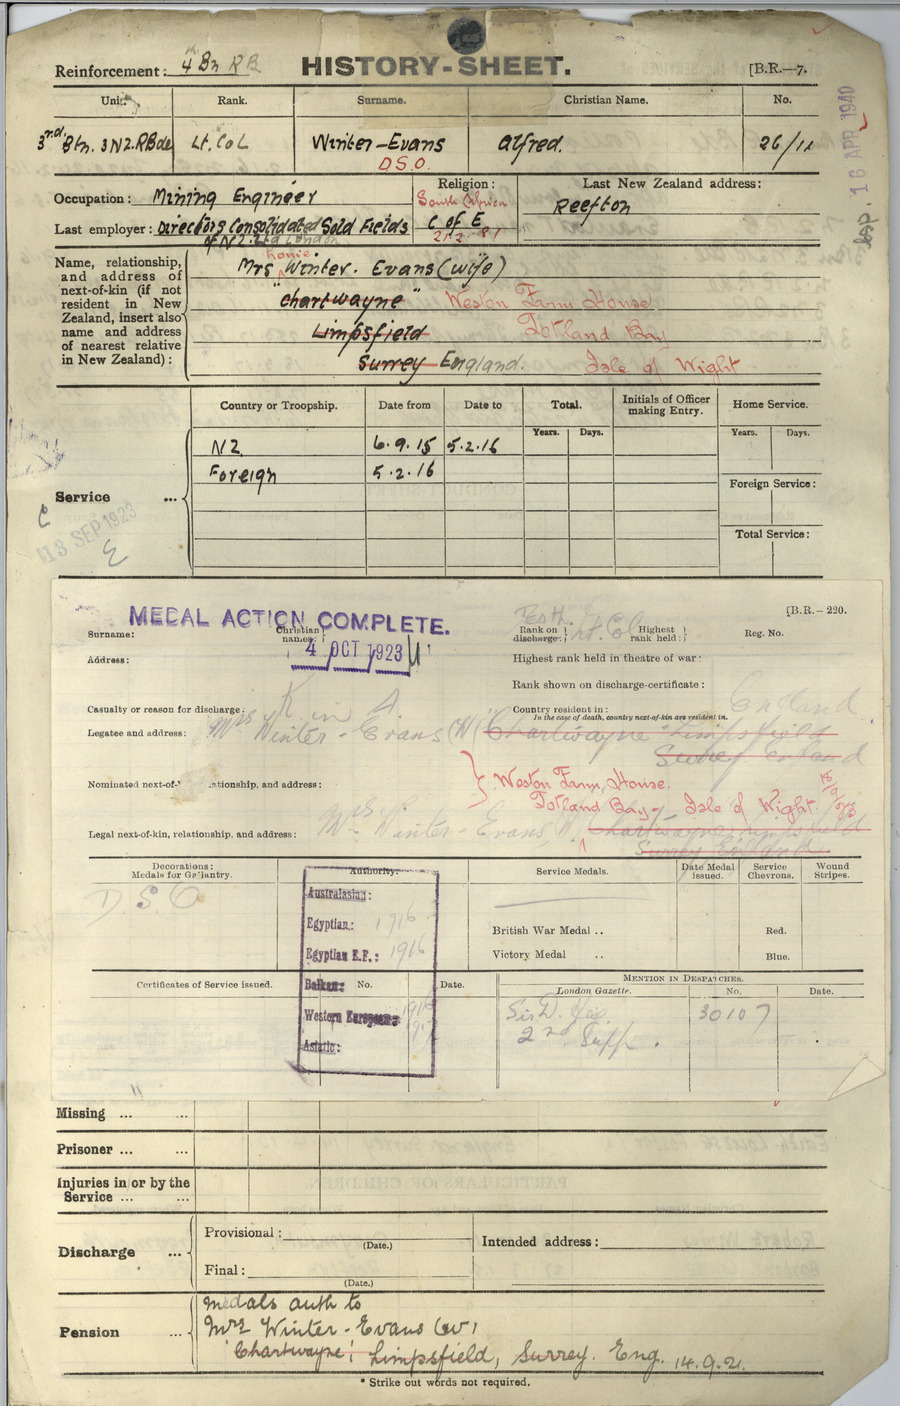 Reinforcement: 4 Bn RB
HISTORY-SHEET.
[B.R.—7.
Unit. Rank. Surname. Christian Name. No.
3rd Btn. 3 NZ. RBde Lt. Col Winter-Evans Alfred. 26/11
D.S.O.
16 APR 1940
Occupation: Mining Engineer
Religion: South Africa
C of E
21.2.81
Last New Zealand address:
Reefton
Last employer: Directors Consolidated Gold Fields
of NZ. Ltd London
Name, relationship, and address of next-of-kin (if not resident in New Zealand, insert also name and address of nearest relative in New Zealand):
Mrs Winter. Evans (wife)
"Chartwayne" Weston Farm House
Limpsfield Totland Bay
Surrey England. Isle of Wight
Country or Troopship. Date from Date to Total. Initials of Officer making Entry. Home Service.
Years. Days. Years. Days.
NZ 6.9.15 5.2.16
Foreign 5.2.16
Foreign Service:
Service ...
Total Service:
13 SEP 1923
MEDAL ACTION COMPLETE.
[B.R.—220.
Surname: Christian names: Rank on discharge: Lt. Col Highest rank held: Reg. No.
4 OCT 1923
Address: Highest rank held in theatre of war:
Rank shown on discharge-certificate:
Casualty or reason for discharge: K in A. Country resident in: England
In the case of death, country next-of-kin are resident in.
Legatee and address: Mrs Winter-Evans (W) "Chartwayne" Limpsfield
Surrey England
Nominated next-of- ationship, and address: Weston Farm House.
Totland Bay - Isle of Wight. 18/9/23
Legal next-of-kin, relationship, and address: Mrs Winter-Evans, Chartwayne, Limpsfield
Surrey England
Decorations: Medals for Gallantry. Authority. Service Medals. Date Medal issued. Service Chevrons. Wound Stripes.
D S O
Australasian:
Egyptian: 1916
Egyptian E.F.: 1916
Balkan:
Western European: 1916
1917
Asiatic:
British War Medal .. Red.
Victory Medal .. Blue.
Certificates of Service issued. No. Date. Mention in Despatches.
London Gazette. No. Date.
Sir D. Haig 30107
2nd Supp.
Missing ... ...
Prisoner ... ...
Injuries in or by the Service ... ...
Discharge ...
Provisional:
(Date.)
Intended address:
Final:
(Date.)
Pension ...
Medals auth to
Mrs Winter-Evans (W)
'Chartwayne', Limpsfield, Surrey. Eng. 14.9.21.
* Strike out words not required.